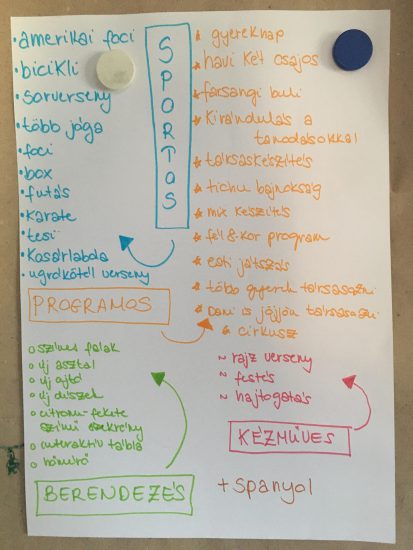 • amerikai foci
• bicikli
• sorverseny
• több jóga
• foci
• box
• futás
• karate
• tesi
• Kosárlabda
• ugrókötél verseny
SPORTOS
* gyereknap
* havi két csajos
* farsangi buli
* Kirándulás a
tanodásokkal
* társaskészítés
* tichu bajnokság
* mix készítés
* fél 8-kor program
* esti játszás
* több gyerek társasozni
* Dani is jöjjön társasozni
* cirkusz
PROGRAMOS
o színes falak
o új asztal
o új ajtó
o új díszek
o citrom-fekete
színű szekrény
o interaktív tábla
o hőmérő
BERENDEZÉS
~ rajz verseny
~ festés
~ hajtogatás
KÉZMŰVES
+ spanyol